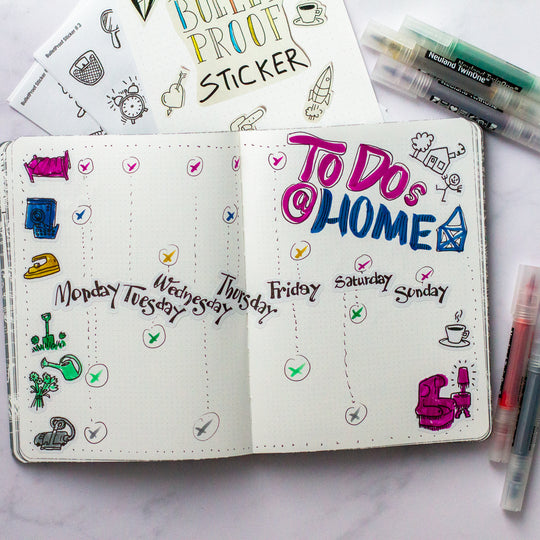 BulletProof Sticker # 3
BULLET
PROOF
STICKER
Neuland TwinOne
Neuland TwinOne
TO DOs
@HOME
Monday
Tuesday
Wednesday
Thursday
Friday
Saturday
Sunday